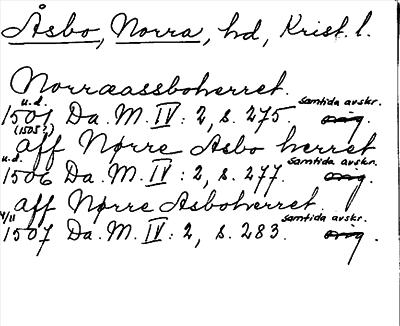 Åsbo, Norra, hd, Krist. l.
Norraassboherret.
u.d. samtida avskr.
1501 Da. M. IV: 2, s. 275. orig.
(1505?)
aff Nørre Asbo herret
u.d. samtida avskr.
1506 Da. M. IV: 2, s. 277. orig.
aff Nørre Asboherret
4/11 samtida avskr.
1507 Da. M. IV: 2, s. 283. orig.